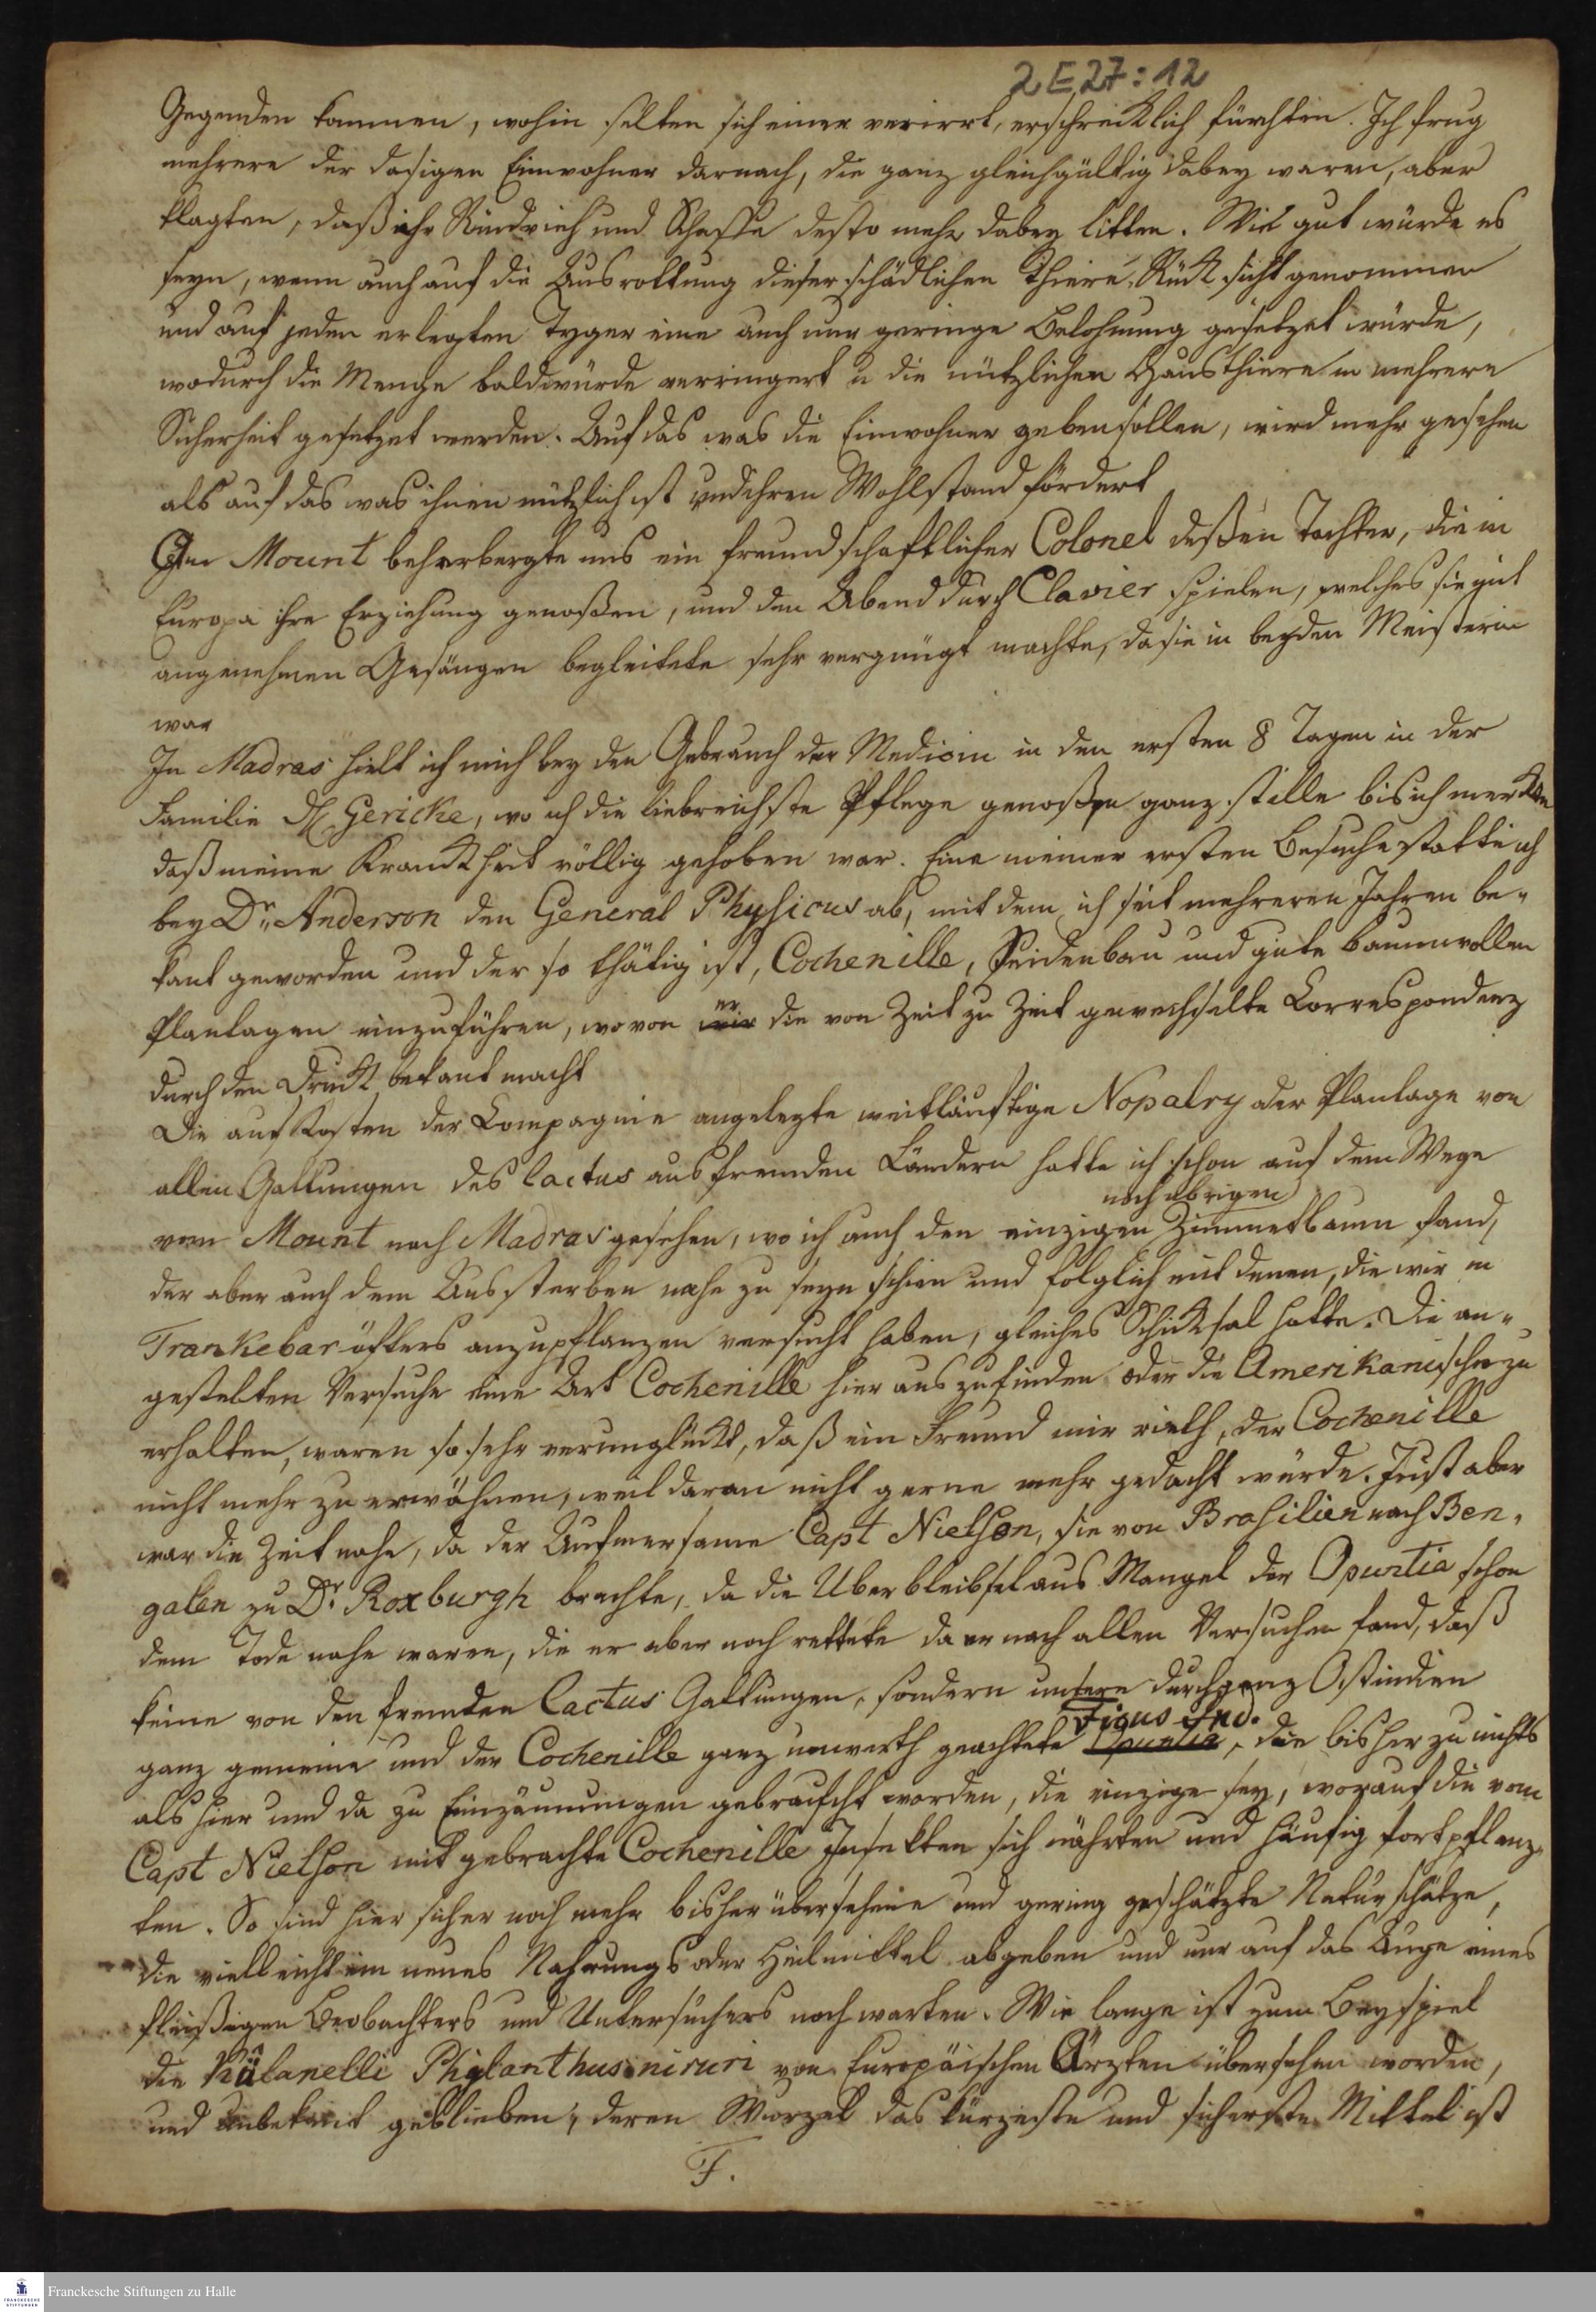 2 E 27 : 12
Gegenden kommen, wohin selten sich einer verirrt, erschrecklich fürchten. Ich frug
mehrere der dasigen Einwohner darnach, die ganz gleichgültig dabey waren, aber
klagten, daß ihr Rindvieh und Schaffe desto mehr dabey litten. Wie gut würde es
seyn, wenn auch auf die Ausrottung dieser schädlichen Thiere Rücksicht genommen
und auf jeden erlegten Tyger eine auch nur geringe Belohnung gesetzet würde,
wodurch die Menge bald würde verringert u die nützlichen Hausthiere in mehrere
Sicherheit gesetzet werden. Auf das was die Einwohner geben sollen, wird mehr gesehen
als auf das was ihnen nützlich ist und ihren Wohlstand fördert
Im Mount beherbergte uns ein freundschaftlicher Colonel deßen Tochter, die in
Europa ihre Erziehung genoßen, uns den Abend durch Clavier spielen, welches sie mit
angenehmen Gesängen begleitete sehr vergnügt machte, da sie in beyden Meisterin
war
In Madras hielt ich mich bey den Gebrauch der Medicin in den ersten 8 Tagen in der
Familie H Gericke, wo ich die liebreichste Pflege genoßen ganz stille bis ich merkte
daß meine Krankheit völlig gehoben war. Eine meiner ersten Besuche stattete ich
bey Dr. Anderson den General Physicus ab, mit dem ich seit mehreren Jahren be-
kant geworden und der so thätig ist, Cochenille, Seidenbau und gute baumwollen
Plantagen einzuführen, wovon er die von Zeit zu Zeit gewechselte Correspondenz
durch den Druck bekant macht
Die auf Kosten der Compagnie angelegte weitläuftige Nopalry oder Plantage von
allen Gattungen des Cactus aus fremden Ländern hatte ich schon auf dem Wege
vom Mount nach Madras gesehen, wo ich auch den einzigen noch übrigen Zimmetbaum fand,
der aber auch dem Aussterben nahe zu seyn schien und folglich mit denen, die wir in
Trankebar öfters anzupflanzen versucht haben, gleiches Schicksal hatte. Die an-
gestelten Versuche eine Art Cochenille hier auszufinden oder die Amerikanische zu
erhalten, waren so sehr verunglückt, daß ein Freund mir rieth, der Cochenille
nicht mehr zu erwähnen, weil daran nicht gerne mehr gedacht würde. Just aber
war die Zeit nahe, da der Aufmersame Capt Nielson, sie von Brasilien nach Ben-
galen zu Dr Roxburgh brachte, da die Uberbleibsel aus Mangel der Opuntia schon
dem Tode nahe waren, die er aber noch rettete da er nach allen Versuchen fand, daß
keine von den fremden Cactus Gattungen, sondern unsere durch ganz Ostindien
ganz gemeine und der Cochenille ganz unwerth geachtete Opuntia Ficus Ind., die bisher zu nichts
als hier und da zu Einzäunungen gebraucht worden, die einzige sey, worauf die vom
Capt Nielson mit gebrachte Cochenille Insekten sich nährten und häufig fortpflanz-
ten. So sind hier sicher noch mehr bisher übersehene und gering geschätzte Naturschätze,
die vielleicht ein neues Nahrungs oder Heilmittel abgeben und nur auf das Auge eines
fleißigen Beobachters und Untersuchers noch warten. Wie lange ist zum Beyspiel
die Külanelli Phylanthus niruri von Europäischen Ärzten übersehen worden,
und unbekant geblieben, deren Wurzel das kürzeste und sicherste Mittel ist
F.
Franckesche Stiftungen zu Halle